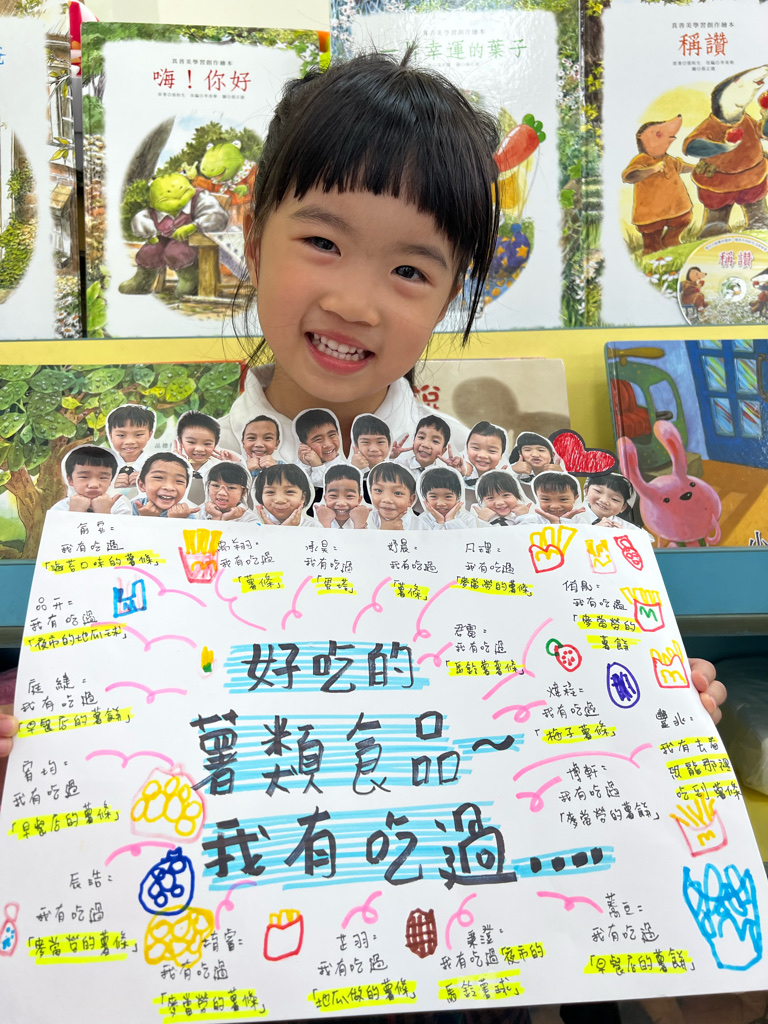 真善美學習創作繪本
嗨！你好
真善美學習創作繪本
幸運的葉子
真善美學習創作繪本
稱讚
稱讚
說
我有吃過
「海苔口味的薯條」
我有吃過
「薯條」
我有吃過
妤晨：
我有吃過
「薯條」
我有吃過
「麥當勞的薯條」
品卉：
我有吃過
「夜市的地瓜球」
我有吃過
「麥當勞的
薯餅
君霏：
我有吃過
「馬鈴薯薯條」
庭緁：
我有吃過
「早餐店的薯餅」
我有吃過
「梅子薯條」
豐兆：
我有去看
恐龍那裡
吃到薯條
宥均：
我有吃過
「早餐店的薯條」
博軒：
我有吃過
「麥當勞的薯餅」
好吃的
薯類食品~
我有吃過....
辰浩：
我有吃過
「麥當勞的薯條」
我有吃過
「麥當勞的薯條」
芷羽：
我有吃過
「地瓜做的薯條」
我有吃過夜市的
馬鈴薯球」
我有吃過
「早餐店的薯餅」